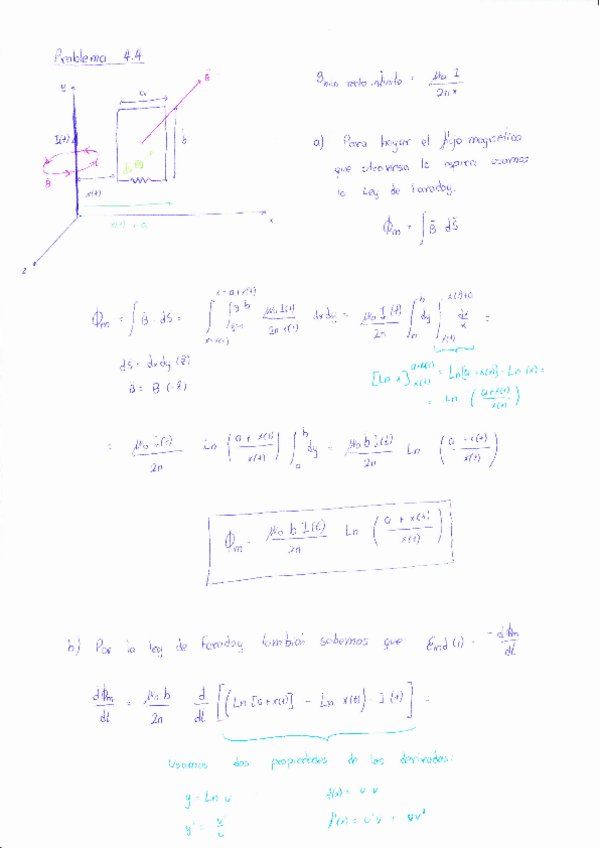 Problema 4.4
y
a
B
I(t)
b
B
x(t)
x(t) + a
x
z
B hilo recto infinito = μ₀ I / 2π x
a) Para hayar el flujo magnético
que atraviesa la espira usamos
la Ley de Faraday.
Φm = ∫ B̄ · ds̄
Φm = ∫ B̄ · ds̄ = ∫_{x=x(t)}^{x=a+x(t)} ∫ μ₀ I(t) / 2π x(t) dx dy = μ₀ I(t) / 2π ∫^b dy ∫_{x(t)}^{x(t)+a} dx / x =
ds̄ = dx dy (ẑ)
B̄ = B (-ẑ)
= Ln ( a + x(t) / x(t) )
= μ₀ I(t) / 2π Ln ( a + x(t) / x(t) ) ∫^b dy = μ₀ b I(t) / 2π Ln ( a + x(t) / x(t) )
Φm = μ₀ b I(t) / 2π Ln ( a + x(t) / x(t) )
b) Por la ley de Faraday también sabemos que Eind (t) = -dΦm / dt
dΦm / dt = μ₀ b / 2π d / dt [ ( Ln [a+x(t)] - Ln x(t) ) · I(t) ] =
Usamos dos propiedades de las derivadas:
y = Ln u
f(x) = u v
y' = u' / u
f'(x) = u'v + uv'